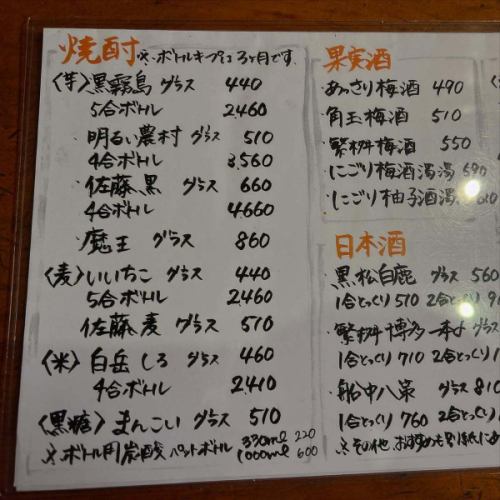 焼酎 ※ボトルキープは3ヶ月です。
〈芋〉黒霧島 グラス 440
5合ボトル 2,460
・明るい農村 グラス 510
4合ボトル 3,560
・佐藤 黒 グラス 660
4合ボトル 4660
・魔王 グラス 860
〈麦〉いいちこ グラス 440
5合ボトル 2460
佐藤 麦 グラス 510
〈米〉白岳しろ グラス 460
4合ボトル 2,410
〈黒糖〉まんこい グラス 510
※ボトル用炭酸ペットボトル 330ml 220
1000ml 600
果実酒
・あっさり梅酒 490
・角玉梅酒 510
・繁桝梅酒 550
・にごり梅酒濁湯
・にごり柚子酒濁
日本酒
・黒松白鹿 グラス 560
1合とっくり 510 2合とっくり
・繁桝 博多一本〆 グラス
1合とっくり 710 2合とっくり
・船中八策 グラス 810
1合とっくり 760 2合とっくり
※その他、おすすめも別紙に